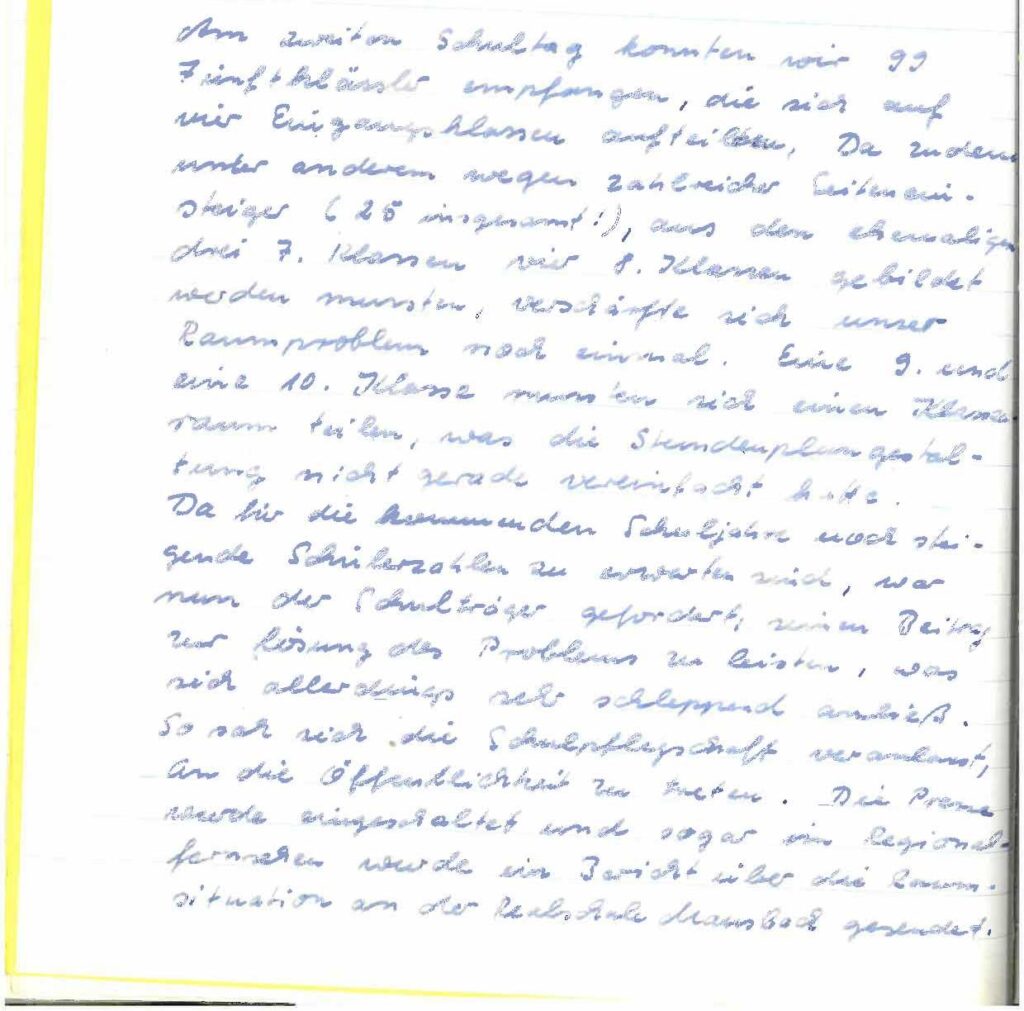 Am zweiten Schultag konnten wir 99
Fünftklässler empfangen, die sich auf
vier Eingangsklassen aufteilten. Da zudem
unter anderem wegen zahlreicher Seitenein-
steiger (25 insgesamt!), aus den ehemaligen
drei 7. Klassen vier 8. Klassen gebildet
werden mussten, verschärfte sich unser
Raumproblem noch einmal. Eine 9. und
eine 10. Klasse mussten sich einen Klassen-
raum teilen, was die Stundenplangestal-
tung nicht gerade vereinfacht hatte.
Da für die kommenden Schuljahre noch stei-
gende Schülerzahlen zu erwarten sind, war
nun der Schulträger gefordert, seinen Beitrag
zur Lösung des Problems zu leisten, was
sich allerdings sehr schleppend anließ.
So sah sich die Schulpflegschaft veranlasst,
an die Öffentlichkeit zu treten. Die Presse
wurde eingeschaltet und sogar im Regional-
fernsehen wurde ein Bericht über die Raum-
situation an der Realschule Mausbach gesendet.